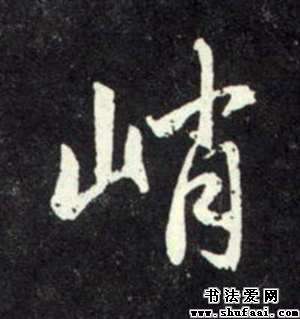 峭
书法爱网
www.shufaai.com